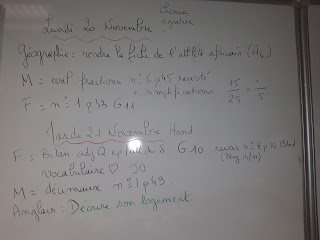 Lundi 20 Novembre
signature
Géographie = rendre la fiche de l'athlète africain (A4)
M = eval fractions n°6 p45 revoir
+ simplifications 15/25 = ./5
F = n°1 p53 G11
Mardi 21 Novembre Hand
F : Bilan adj Q cplt du S G10 revoir n°8 p10 Blod
(Blog 14/11)
Vocabulaire ♡ JO
M = décimaux n°1 p43.
Anglais : Décrire son logement